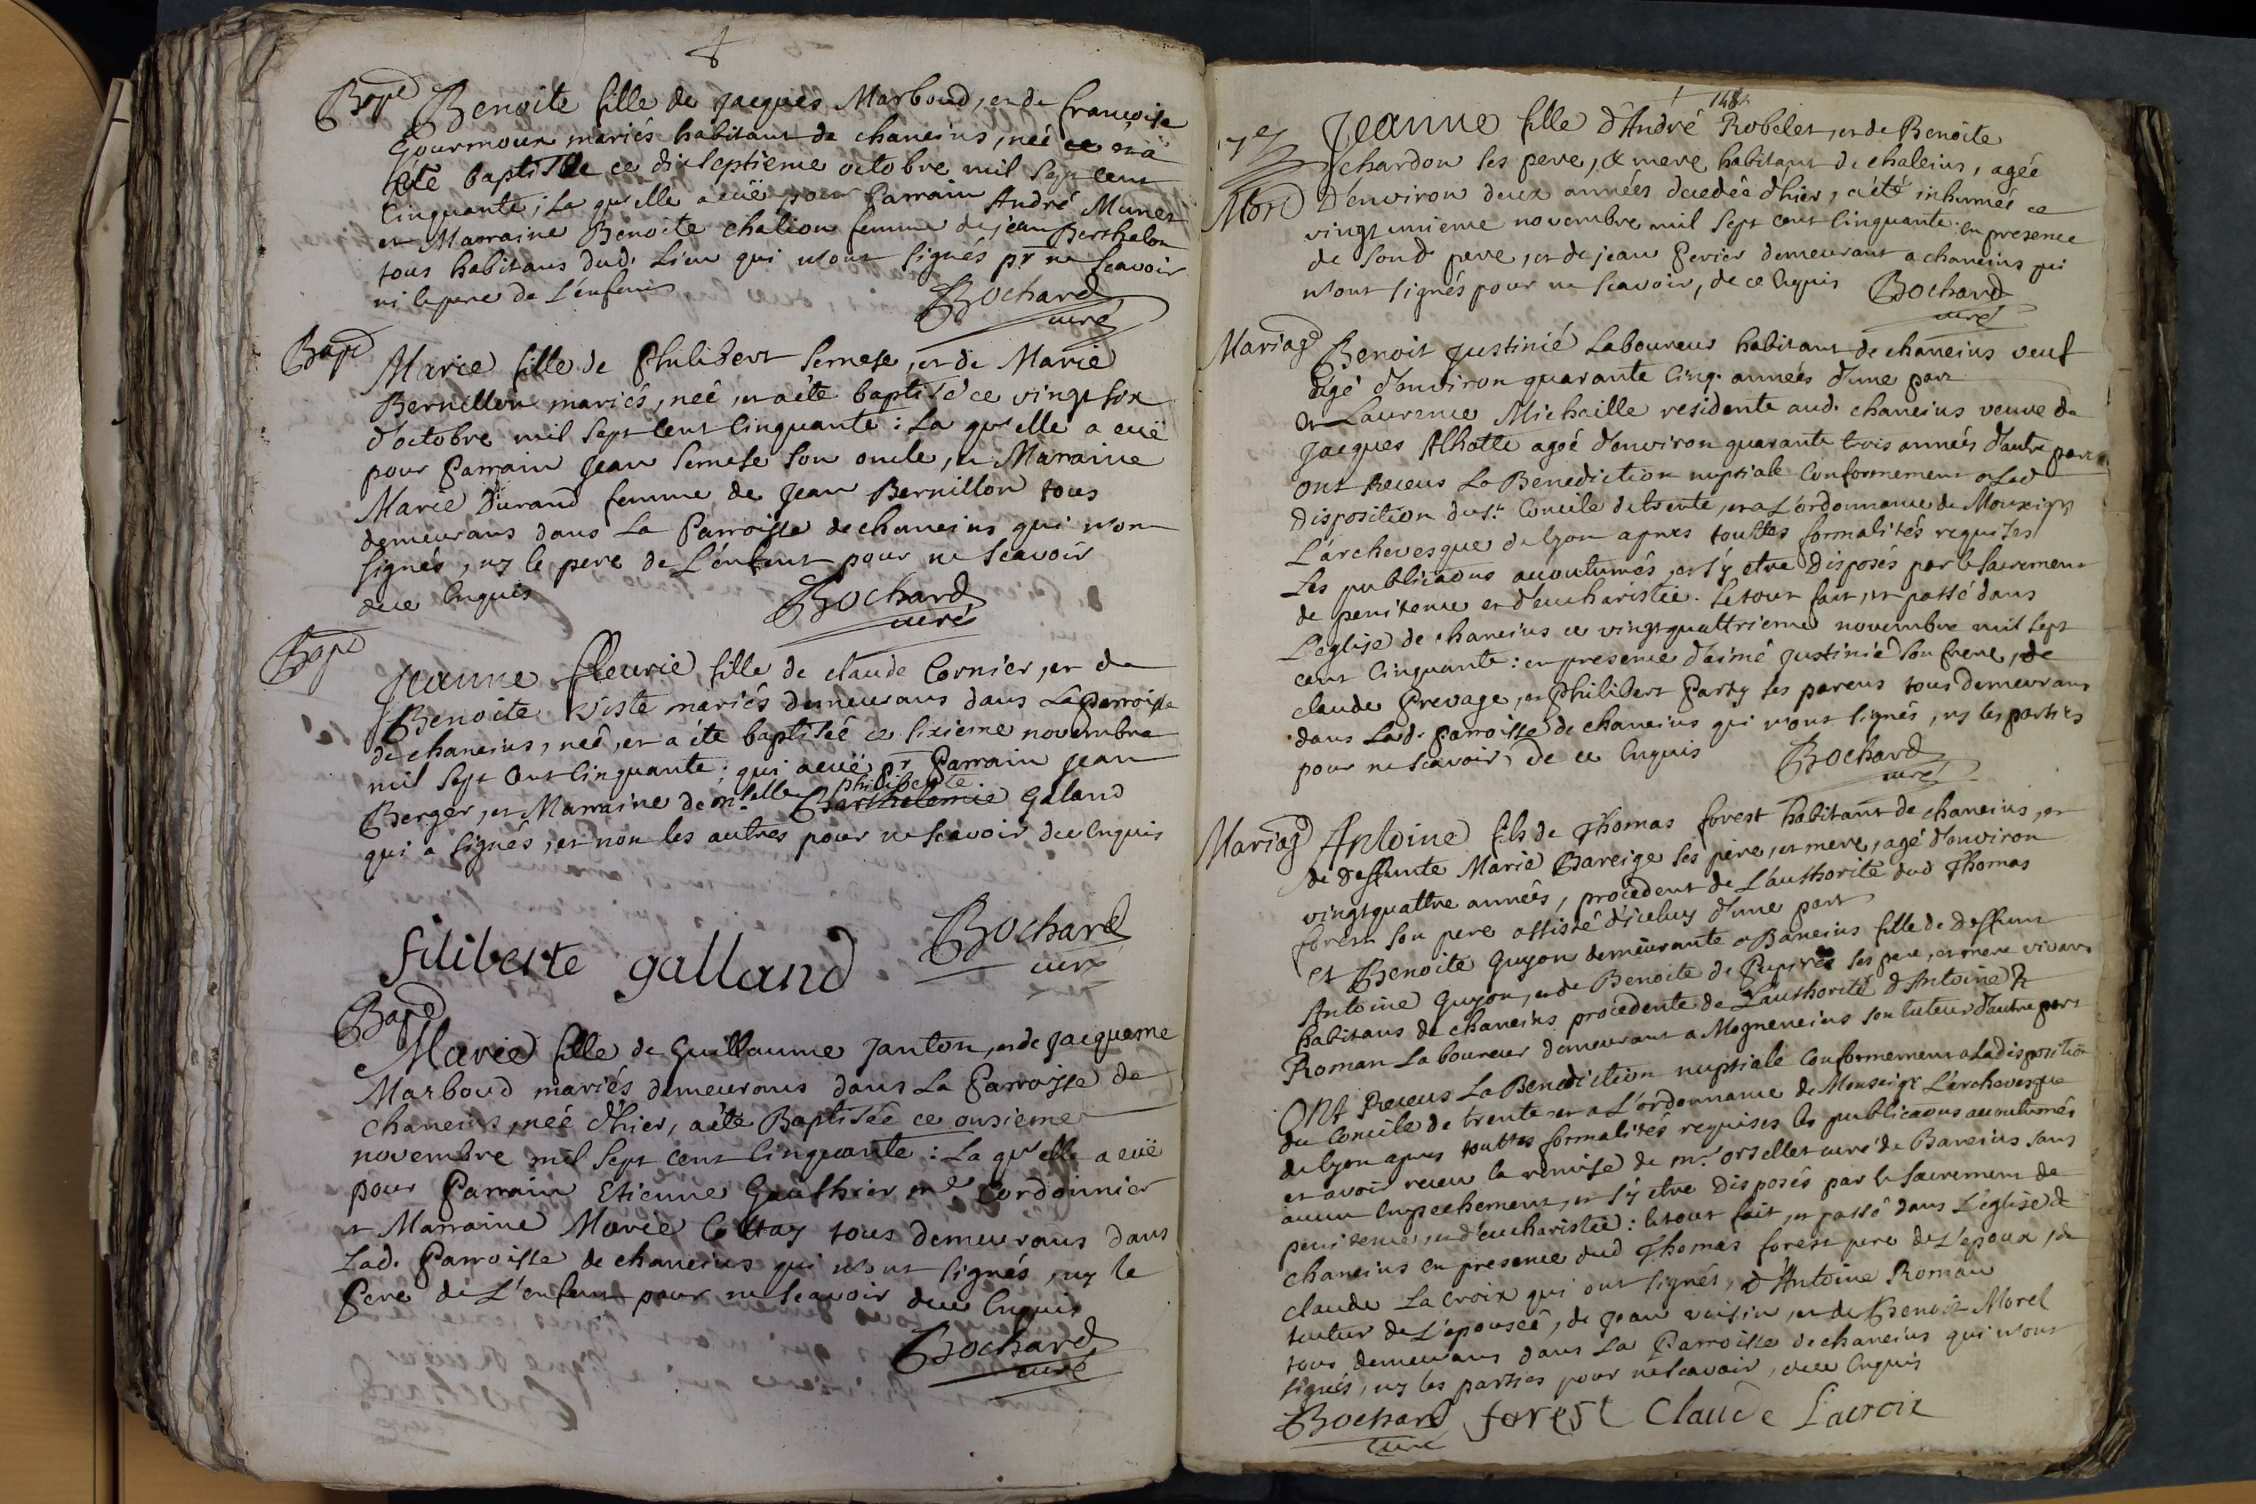 Bapt Benoite fille de Jacques Marboud, et de françoise
Gourmoux mariés habitant de chaneins, née et a
été baptisée ce dix septieme octobre mil sept cent
cinquante ; La qu'elle a euë pour Parrain André Munet
et Marraine Benoite chalion femme de jean Berthelon
tous habitans dud. Lieu qui n'ont signés pr ne scavoir
ni le pere de L'enfent
Bochard
curé
Bapt
Marie fille de Philibert Sernese, et de Marie
Bernillon mariés, née, et a été baptisé ce vingt six
d'octobre mil sept cent cinquante : La qu'elle a euë
pour Parrain Jean Sernese son oncle, et Marraine
Marie Durand femme de Jean Bernillon tous
demeurans dans La Parroisse de chaneins qui n'ont
signés, ny le pere de L'enfent pour ne scavoir
de ce Enquis
Bochard
curé
Bapt
Jeanne fleurie fille de claude Cornier, et de
Benoite Viste mariés demeurans dans La Parroisse
de chaneins, née, et a été baptisée ce sixieme novembre
mil sept cent cinquante ; qui a euë pr Parrain Jean
philiberte
Berger, et Marraine demlselle Barthelemie Galand
qui a signés, et non les autres pour ne scavoir de ce Enquis
Bochard
filiberte galland
curé
Bapt
Marie fille de Guillaume Janton, et de Jacqueme
Marboud mariés demeurans dans La Parroisse de
chaneins, née d'hier, a été Baptisée ce onsieme
novembre mil sept cent cinquante : La qu'elle a euë
pour Parrain Etienne Gauthier me Cordonnier
et Marraine Marie tous demeurans dans
Lad. Parroisse de chaneins qui n'ont signés, ny le
Pere de L'enfent pour ne scavoir de ce Enquis
Bochard
curé
148
Jeanne fille d'André Robelet, et de Benoite
chardon ses pere, & mere habitant de chaleins, agée
Mort D'environ deux années decedée d'hier, a été inhumée ce
vingt unieme novembre mil sept cent cinquante en presence
de sond pere, et de jean Perier demeurant a chaneins qui
n'ont signés pour ne scavoir, de ce Enquis Bochard
curé
Mariage Benoit Justinié Laboureur habitant de chaneins veuf
agé d'environ quarante cinq. années d'une part
Et Laurence Michaille residente aud. chaneins veuve de
Jacques Alhotte agée d'environ quarante trois années d'autre part
ont Receus La Benediction nuptiale Conformement a Lad
Disposition du st. Concile de trente, et a L'ordonnance de Monseigr
L'archevesque de lyon apres touttes formalités requises
Les publicaons accoutumés, et s'y etre Disposés par le sacrement
de penitence et d'eucharistie. Le tout fait, et passé dans
L'eglise de chaneins ce vingt quattrieme novembre mil sept
cent cinquante : en presence d'aimé Justinié son frere, de
claude Prevage, et Philibert Party ses parens tous demeurans
dans Lad. Parroisse de chaneins qui n'ont signés, ny les parties
pour ne scavoir de ce Enquis Bochard
curé
Mariage Antoine fils de Thomas forest habitant de chaneins, et
de deffunte Marie Bareige ses pere, et mere, agé d'environ
vingt quattre années, procedent de L'authorité dud Thomas
forest son pere assisté d'iceluy d'une part
et Benoite Guyon demeurante a Baneins fille de deffunt
Antoine Guyon, et de Benoite de ses pere, et mere vivans
habitans de chaneins procedente de L'authorité d'Antoine
Roman Laboureur demeurant a Mogneneins son tuteur d'autre part
Ont Receus La Benediction nuptiale Conformement a La disposition
du Concile de trente et a L'ordonnance de Monseigr L'archevesque
de lyon apres touttes formalités requises les publicaons accoutumés
et avoir receu la remise de mr. orsellet curé de Baneins sans
aucun Empechement, et s'y etre Disposés par le sacrement de
penitence, et d'eucharistie : le tout fait, et passé dans L'eglise de
chaneins en presence dud Thomas forest pere de L'epoux, de
claude Lacroix qui ont signés, d'Antoine Roman
tuteur de L'epousée, de Jean voisin, et de Benoit Morel
tous demeurans dans La Parroisse de chaneins qui n'ont
signés, ny les parties pour ne scavoir, de ce Enquis
Bochard forest Claude Lacroix
curé